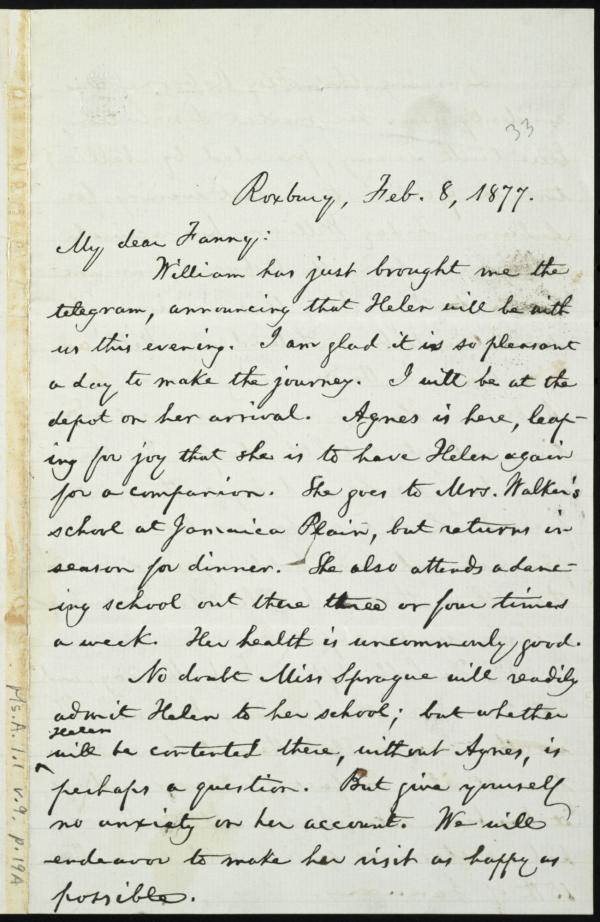 33
Roxbury, Feb. 8, 1877.
My dear Fanny:
William has just brought me the
telegram, announcing that Helen will be with
us this evening. I am glad it is so pleasant
a day to make the journey. I will be at the
depot on her arrival. Agnes is here, leap-
ing for joy that she is to have Helen again
for a companion. She goes to Mrs. Walker's
school at Jamaica Plain, but returns in
season for dinner. She also attends a danc-
ing school out there three or four times
a week. Her health is uncommonly good.
No doubt Miss Sprague will readily
admit Helen to her school; but whether
Helen
will be contented there, without Agnes, is
perhaps a question. But give yourself
no anxiety on her account. We will
endeavor to make her visit as happy as
possible.
Ms.A.1.1 v.9, p.19A